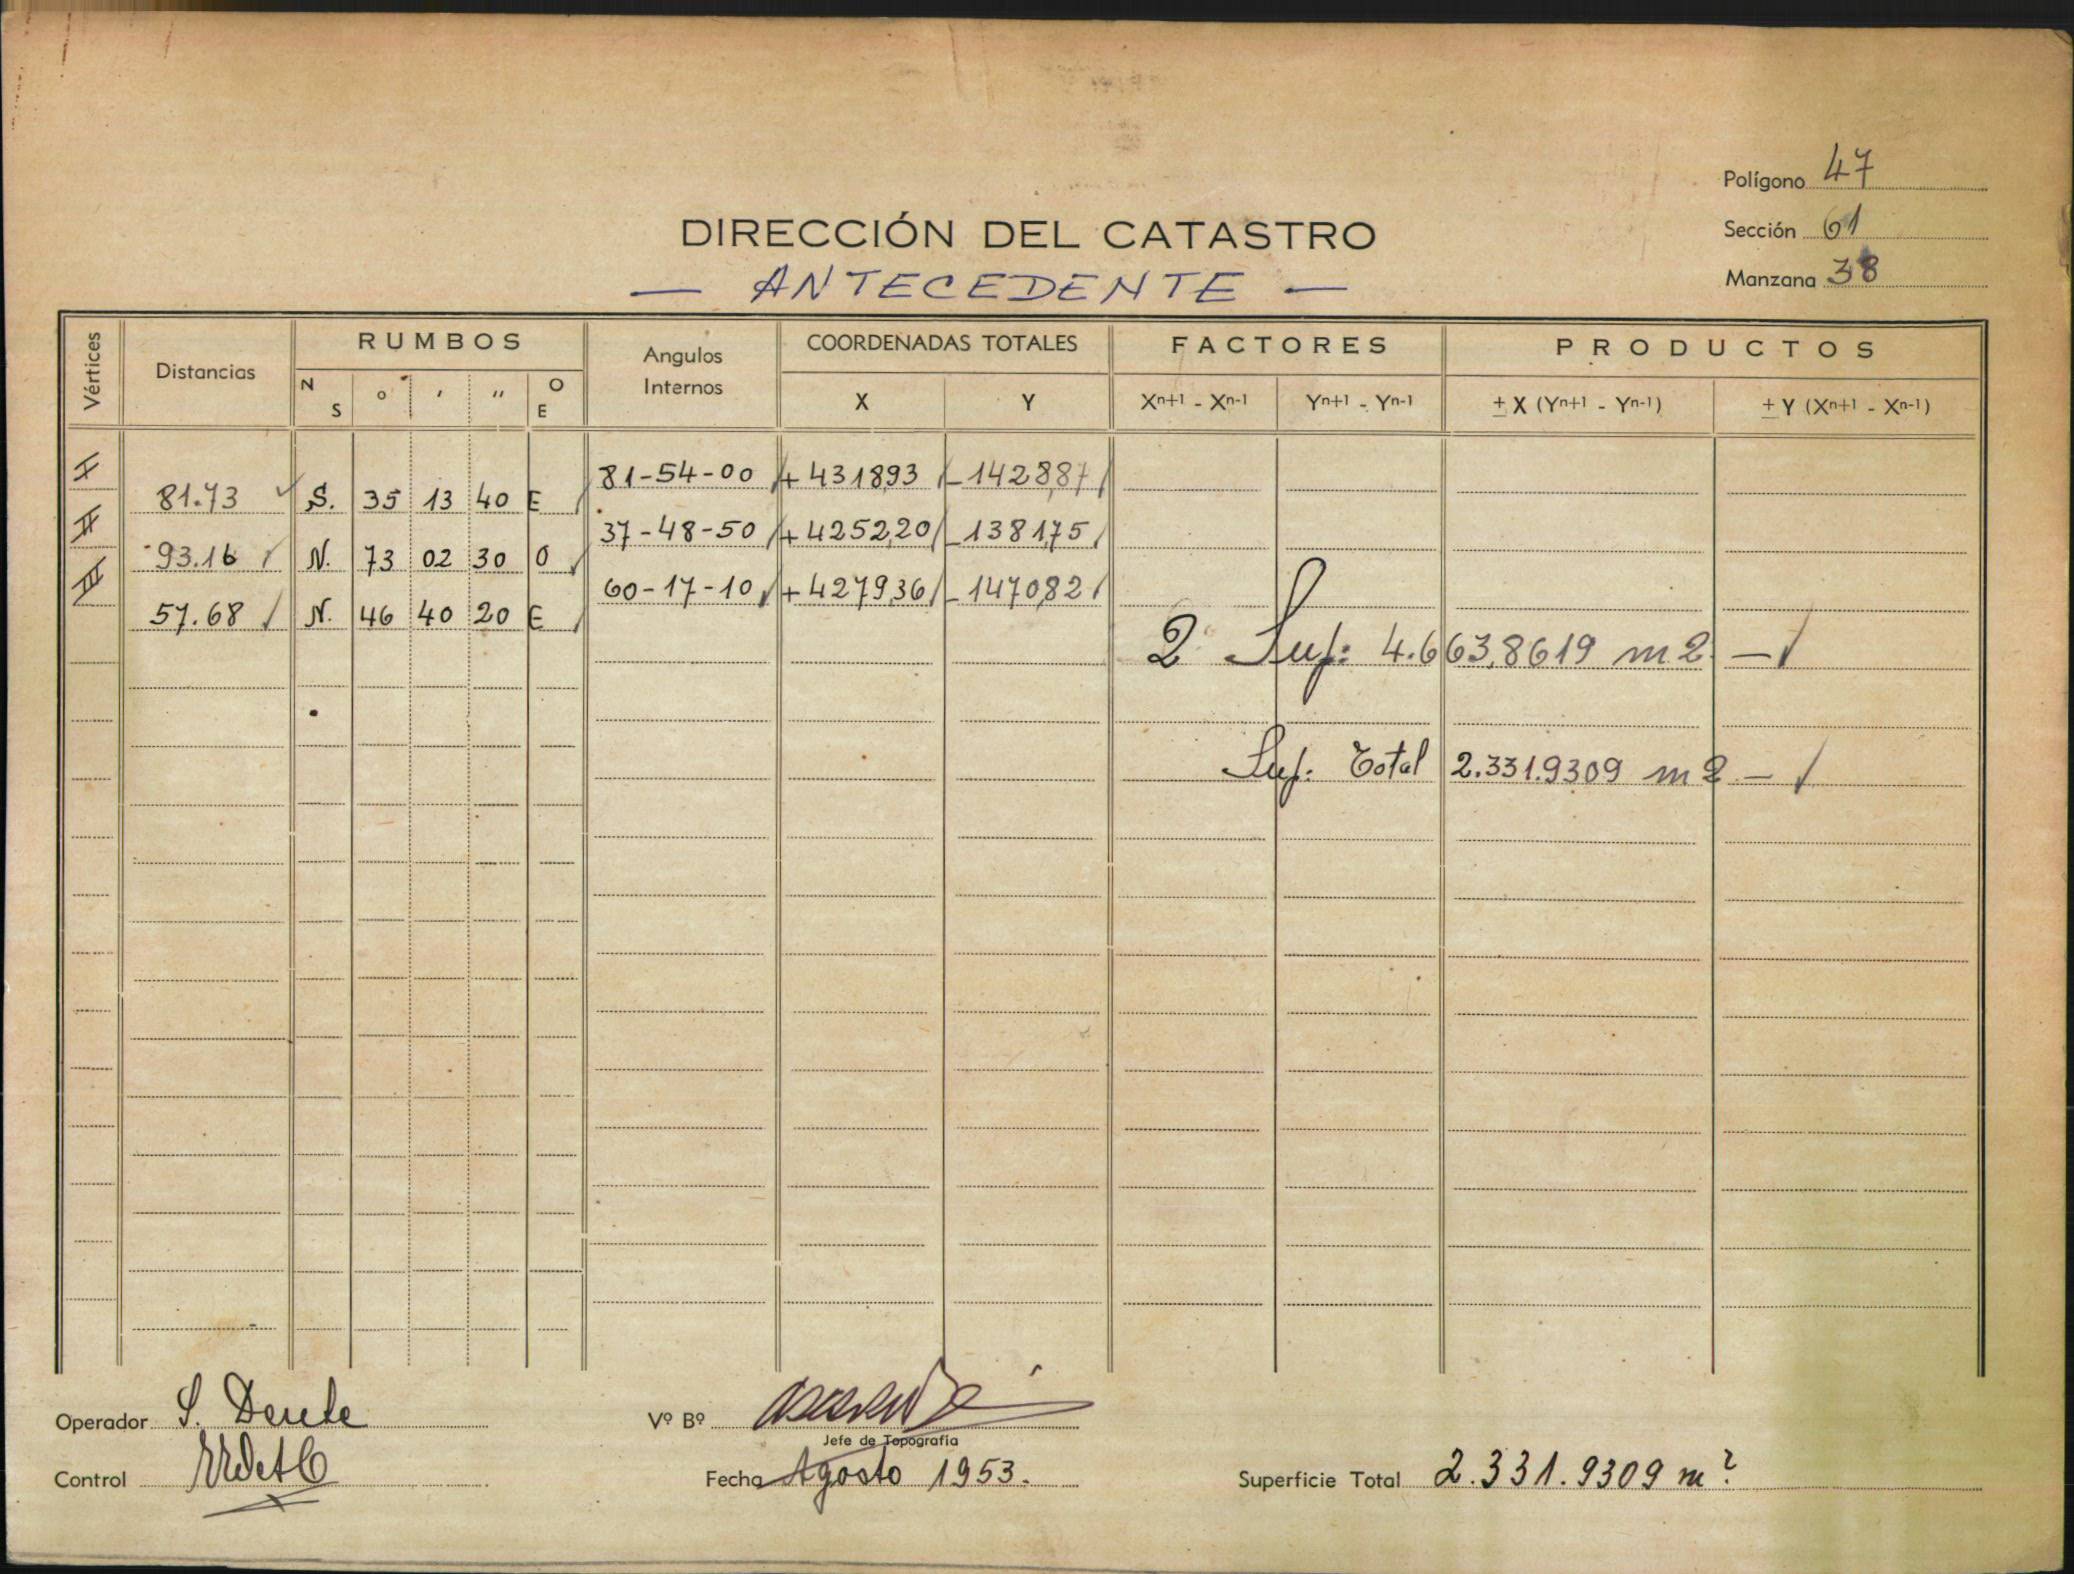 Polígono 47
DIRECCIÓN DEL CATASTRO
Sección 61
— ANTECEDENTE —
Manzana 38
Vértices Distancias RUMBOS Angulos Internos COORDENADAS TOTALES FACTORES PRODUCTOS
N S o ′ ″ O E X Y Xn+1 - Xn-1 Yn+1 - Yn-1 ± X (Yn+1 - Yn-1) ± Y (Xn+1 - Xn-1)
I 81-54-00 + 4318,93 - 1428,87
81.73 S. 35 13 40 E
II 37-48-50 + 4252,20 - 1381,75
93.16 N. 73 02 30 O
III 60-17-10 + 4279,36 - 1470,82
57.68 N. 46 40 20 E
2 Sup: 4.663,8619 m2 —
Sup. Total 2.331.9309 m2 —
Operador S. Vº Bº
Jefe de Topografía
Control Fecha Agosto 1953. Superficie Total 2.331.9309 m2